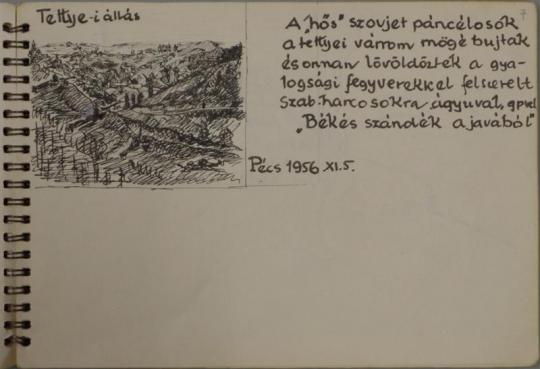 Tettye-i állás
7
A "hős" szovjet páncélosok
a tettyei várrom mögé bujtak
és onnan lövöldöztek a gya-
logsági fegyverekkel felszerelt
szab. harcosokra, ágyuval, gpvel
"Békés szándék a javából"
Pécs 1956 XI. 5.